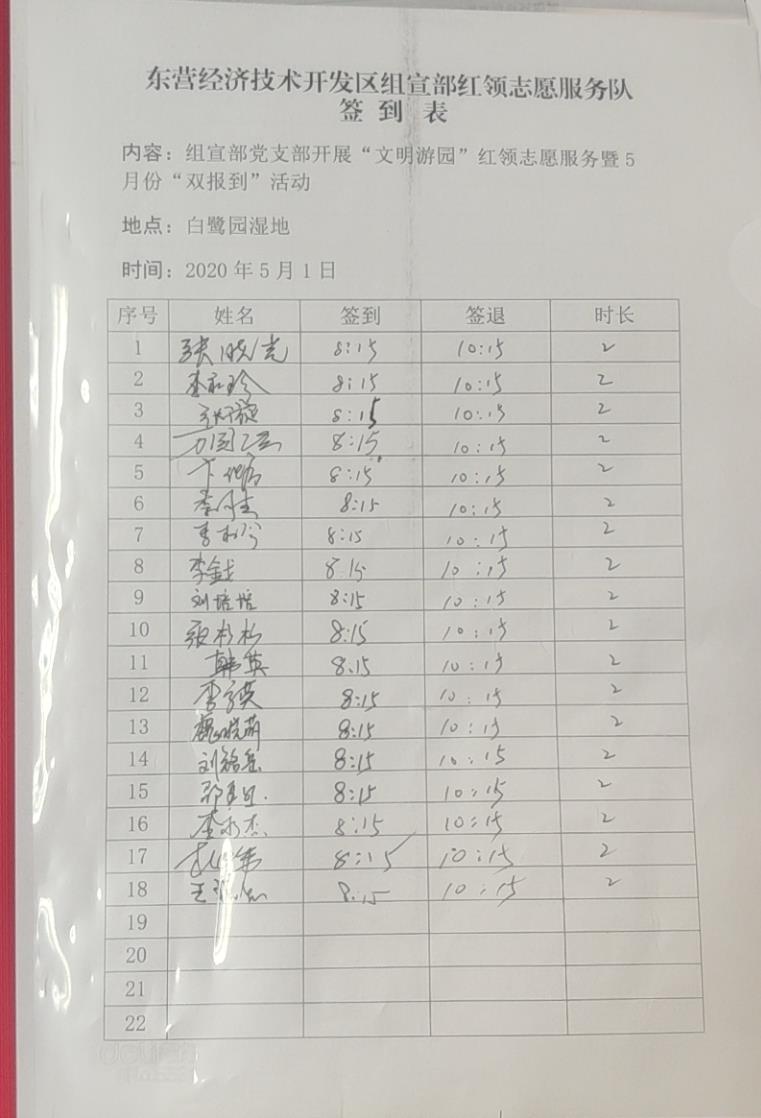 东营经济技术开发区组宣部红领志愿服务队
签 到 表
内容：组宣部党支部开展“文明游园”红领志愿服务暨5
月份“双报到”活动
地点：白鹭园湿地
时间：2020年5月1日
序号 姓名 签到 签退 时长
1 张晓光 8:15 10:15 2
2 8:15 10:15 2
3 8:15 10:15 2
4 8:15 10:15 2
5 8:15 10:15 2
6 8:15 10:15 2
7 8:15 10:15 2
8 8:15 10:15 2
9 刘培培 8:15 10:15 2
10 张杉杉 8:15 10:15 2
11 韩英 8:15 10:15 2
12 8:15 10:15 2
13 魏晓萌 8:15 10:15 2
14 8:15 10:15 2
15 8:15 10:15 2
16 8:15 10:15 2
17 8:15 10:15 2
18 8:15 10:15 2
19
20
21
22
deli